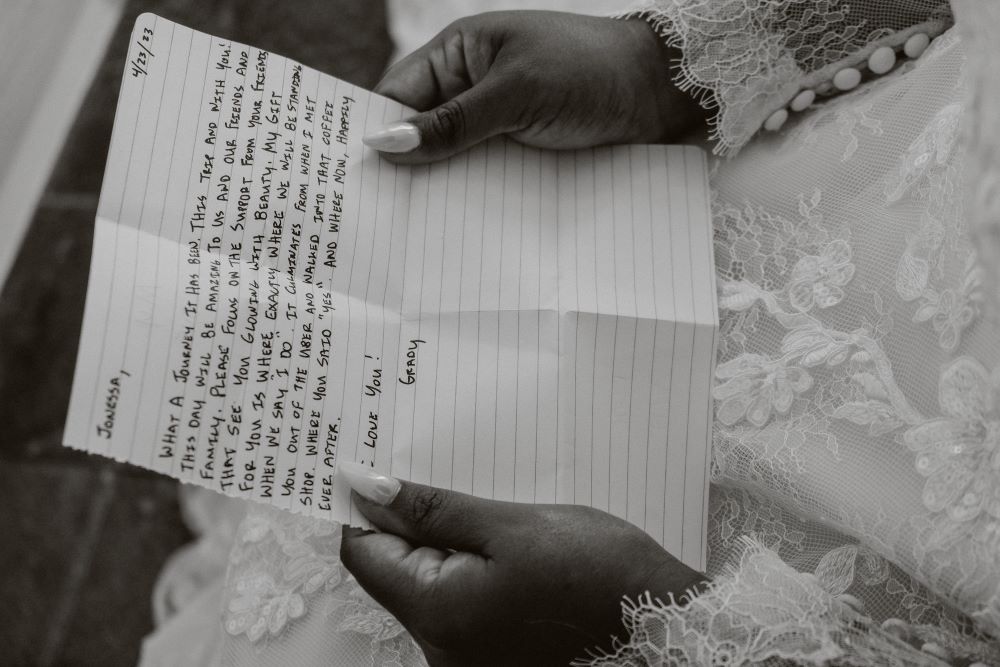 4/23/23
JONESSA,
WHAT A JOURNEY IT HAS BEEN, THIS TRIP AND WITH YOU!
THIS DAY WILL BE AMAZING TO US AND OUR FRIENDS AND
FAMILY. PLEASE FOCUS ON THE SUPPORT FROM YOUR FRIENDS
THAT SEE YOU GLOWING WITH BEAUTY. MY GIFT
FOR YOU IS WHERE EXACTLY WHERE WE WILL BE STANDING
WHEN WE SAY "I DO". IT CULMINATES FROM WHEN I MET
YOU OUT OF THE UBER AND WALKED INTO THAT COFFEE
SHOP. WHERE YOU SAID "YES". AND WHERE NOW, HAPPILY
EVER AFTER.
I LOVE YOU!
GRADY